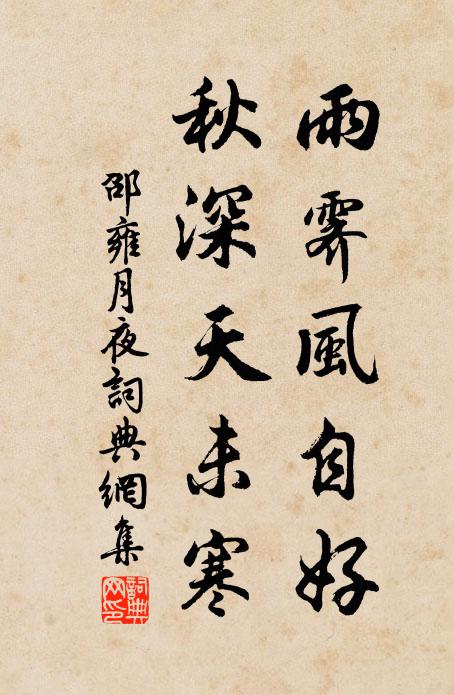 雨霽風自好
秋深天未寒
邵雍月夜詞典網集
詞典
网印